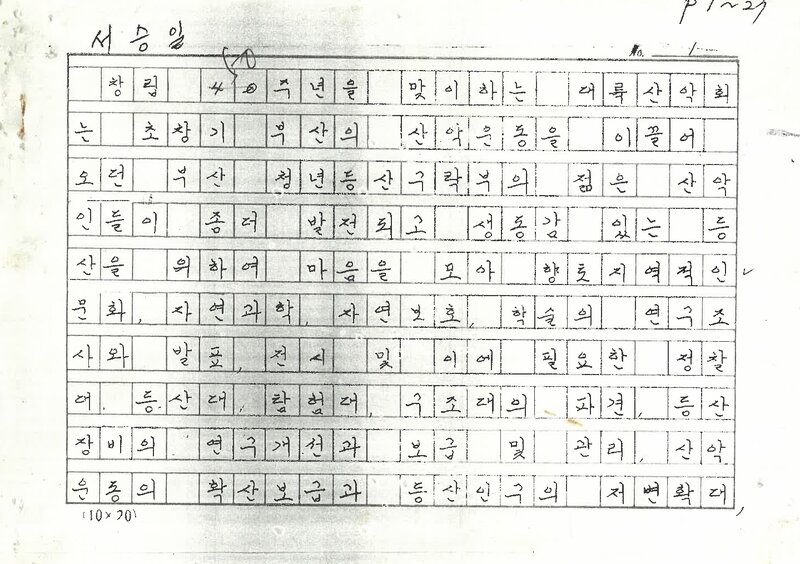 P 1~27
서승일
No. 1
창립 40주년을 맞이하는 대륙산악회
는 초창기 부산의 산악운동을 이끌어
오던 부산 청년등산구락부의 젊은 산악
인들이 좀더 발전되고 생동감 있는 등
산을 위하여 마음을 모아 향토지역적인
문화, 자연과학, 자연보호, 학술의 연구조
사와 발표, 전시 및 이에 필요한 정찰
대, 등산대, 탐험대, 구조대의 파견, 등산
장비의 연구개선과 보급 및 관리, 산악
운동의 확산보급과 등산인구의 저변확대,
(10×20)